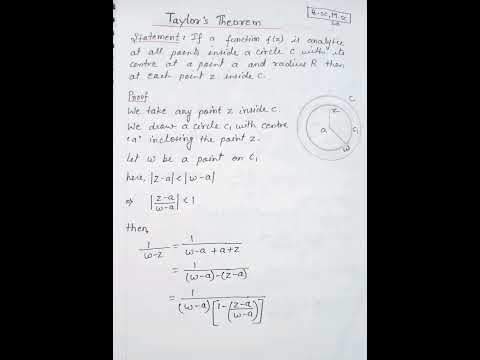 Taylor's Theorem
B.Sc, M.Sc
Statement: If a function f(z) is analytic
at all points inside a circle C with its
centre at a point a and radius R then
at each point z inside C.
Proof
We take any point z inside C.
We draw a circle C₁ with centre
'a' inclosing the point z.
Let w be a point on C₁
here, |z-a| < |w-a|
⇒ |z-a/w-a| < 1
then,
1/w-z = 1/w-a+a+z
= 1/(w-a)-(z-a)
= 1/(w-a)[1-(z-a/w-a)]
C
z
a
C₁
w